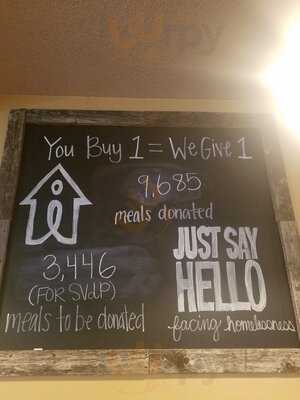 You Buy 1 = We Give 1
9,685
meals donated
3,446
(FOR SVdP)
meals to be donated
JUST SAY
HELLO
facing homelessness